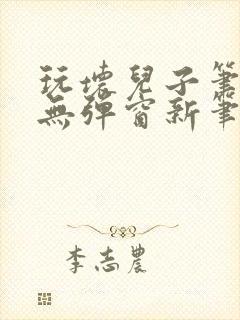 玩壞兒子筆
無彈窗新筆
李志農